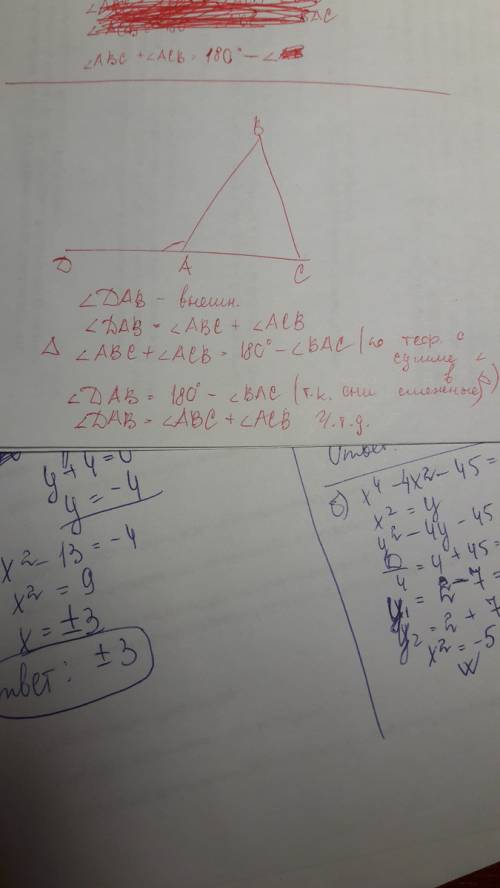 BAC
∠ABC + ∠ACB = 180° − ∠
B
D A C
∠DAB – внешн.
∠DAB = ∠ABC + ∠ACB
Δ ∠ABC + ∠ACB = 180° − ∠BAC (по теор. о
сумме ∠
в Δ)
∠DAB = 180° − ∠BAC (т.к. они смежные)
∠DAB = ∠ABC + ∠ACB ч.т.д.
y + 4 = 0
y = −4
x² − 13 = −4
x² = 9
x = ±3
ответ: ±3
Ответ:
б) x⁴ − 4x² − 45 =
x² = y
y² − 4y − 45
D/4 = 4 + 45 =
y₁ = 2 − 7 =
y₂ = 2 + 7
x² = −5